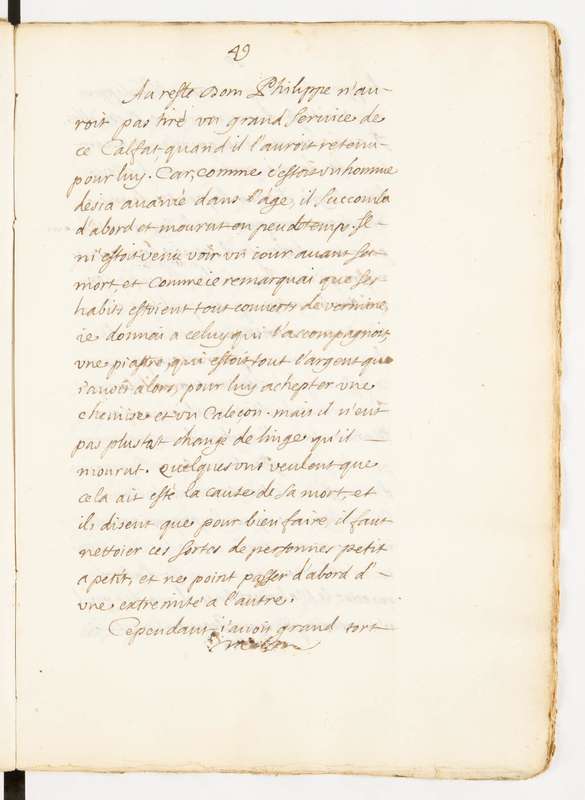 49
Au reste Dom Philippe n'au-
roit pas tiré vn grand service de
ce Calfat, quand il l'auroit retenu
pour luy. Car, comme c'estoit vn homme
desia auancé dans l'age, il succomba
d'abord et mourut en peu de temps. Il
m'estoit venu voir vn iour auant sa
mort, et comme ie remarquai que ses
habits estoient tout couverts de vermine,
ie donnai a celuy qui l'accompagnoit,
vne piastre, qui estoit tout l'argent que
i'auois alors, pour luy achepter vne
chemise et vn Caleçon. mais il n'eut
pas plustost changé de linge qu'il
mourut. Quelques vns veulent que
cela ait esté la cause de sa mort, et
ils disent que pour bien faire, il faut
nettoier ces sortes de personnes petit
a petit, et ne point passer d'abord d'-
vne extremité a l'autre.
Cependant i'auois grand tort